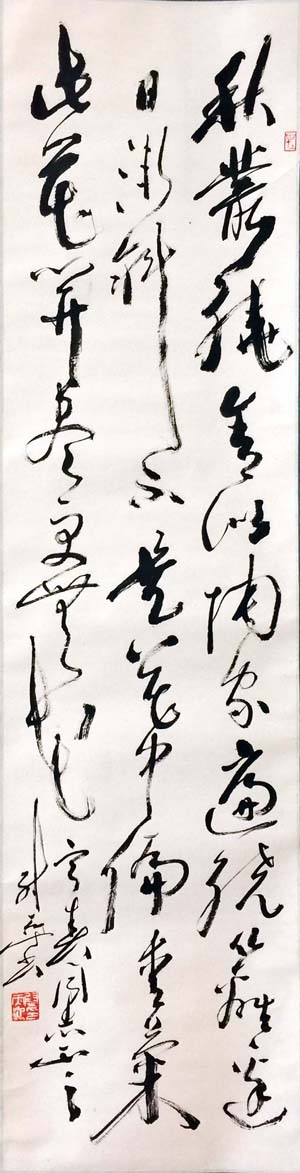 秋叢繞舍似陶家遍繞籬邊
日漸斜不是花中偏愛菊
此花開盡更無花
同志正之